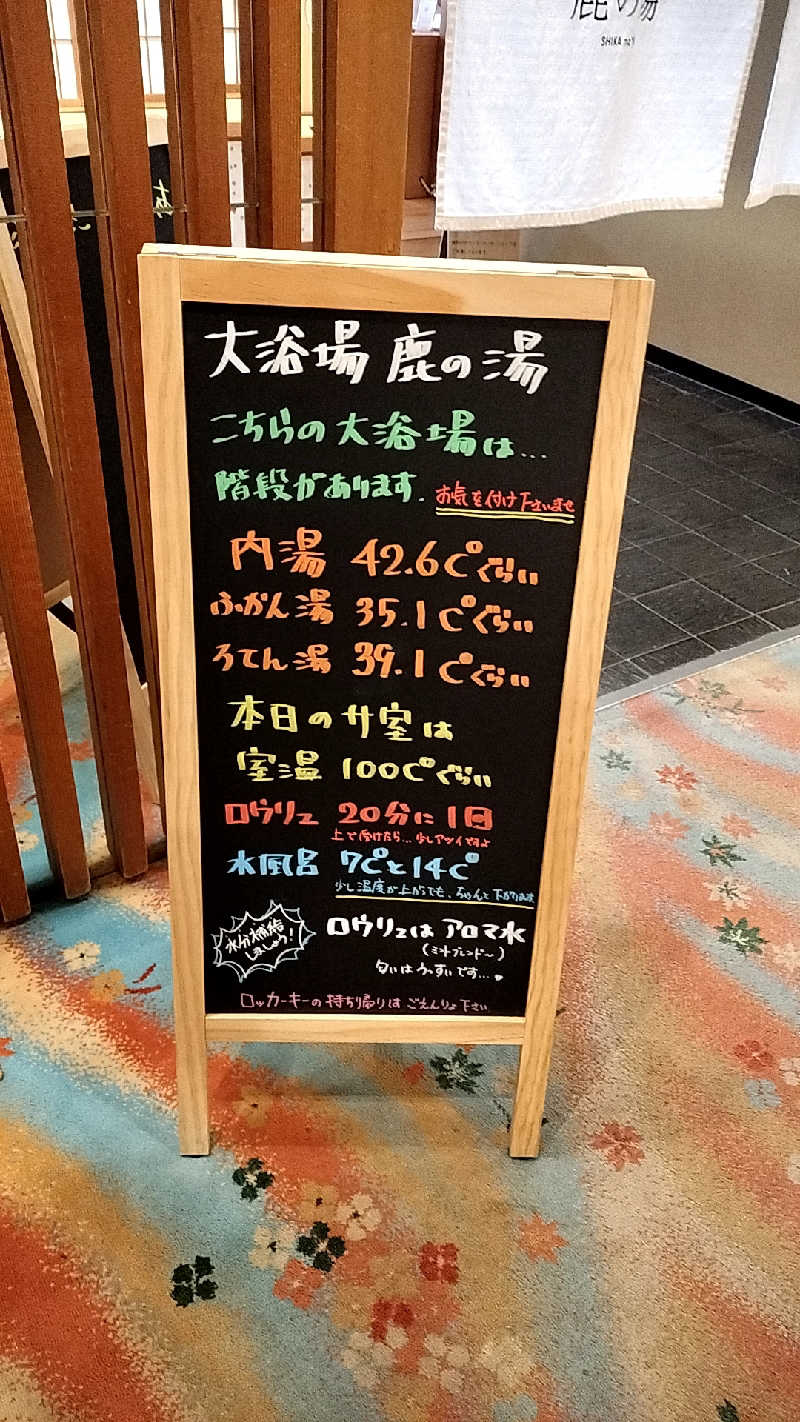 鹿の湯
SHIKA no Yu
大浴場 鹿の湯
こちらの大浴場は...
階段があります. お気を付け下さいませ
内湯 42.6℃ぐらい
ふかん湯 35.1℃ぐらい
ろてん湯 39.1℃ぐらい
本日のサ室は
室温 100℃ぐらい
ロウリュ 20分に1回
上で受けたら...少しアツイですよ
水風呂 7℃と14℃
少し温度が上がっても、ちゃんと下がります
水分補給
しましょう!
ロウリュは アロマ水
(ミントブレンド〜)
匂いはうっすいです...♥
ロッカーキーの持ち帰りは ごえんりょ下さい.